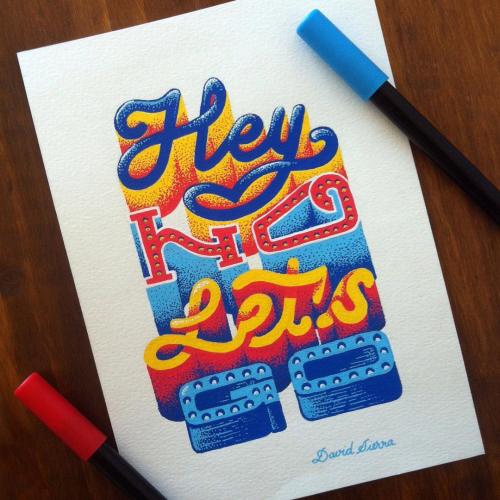 Hey
HO
Let's
GO
David Sierra